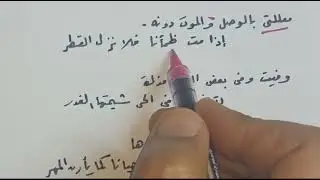 معللتي بالوصل والموت دونه
إذا مت ظمأنا فلا نزل القطر
وفيت وفي بعض مذلة
في الحي شيمتها الغدر
كما يأرن المهر